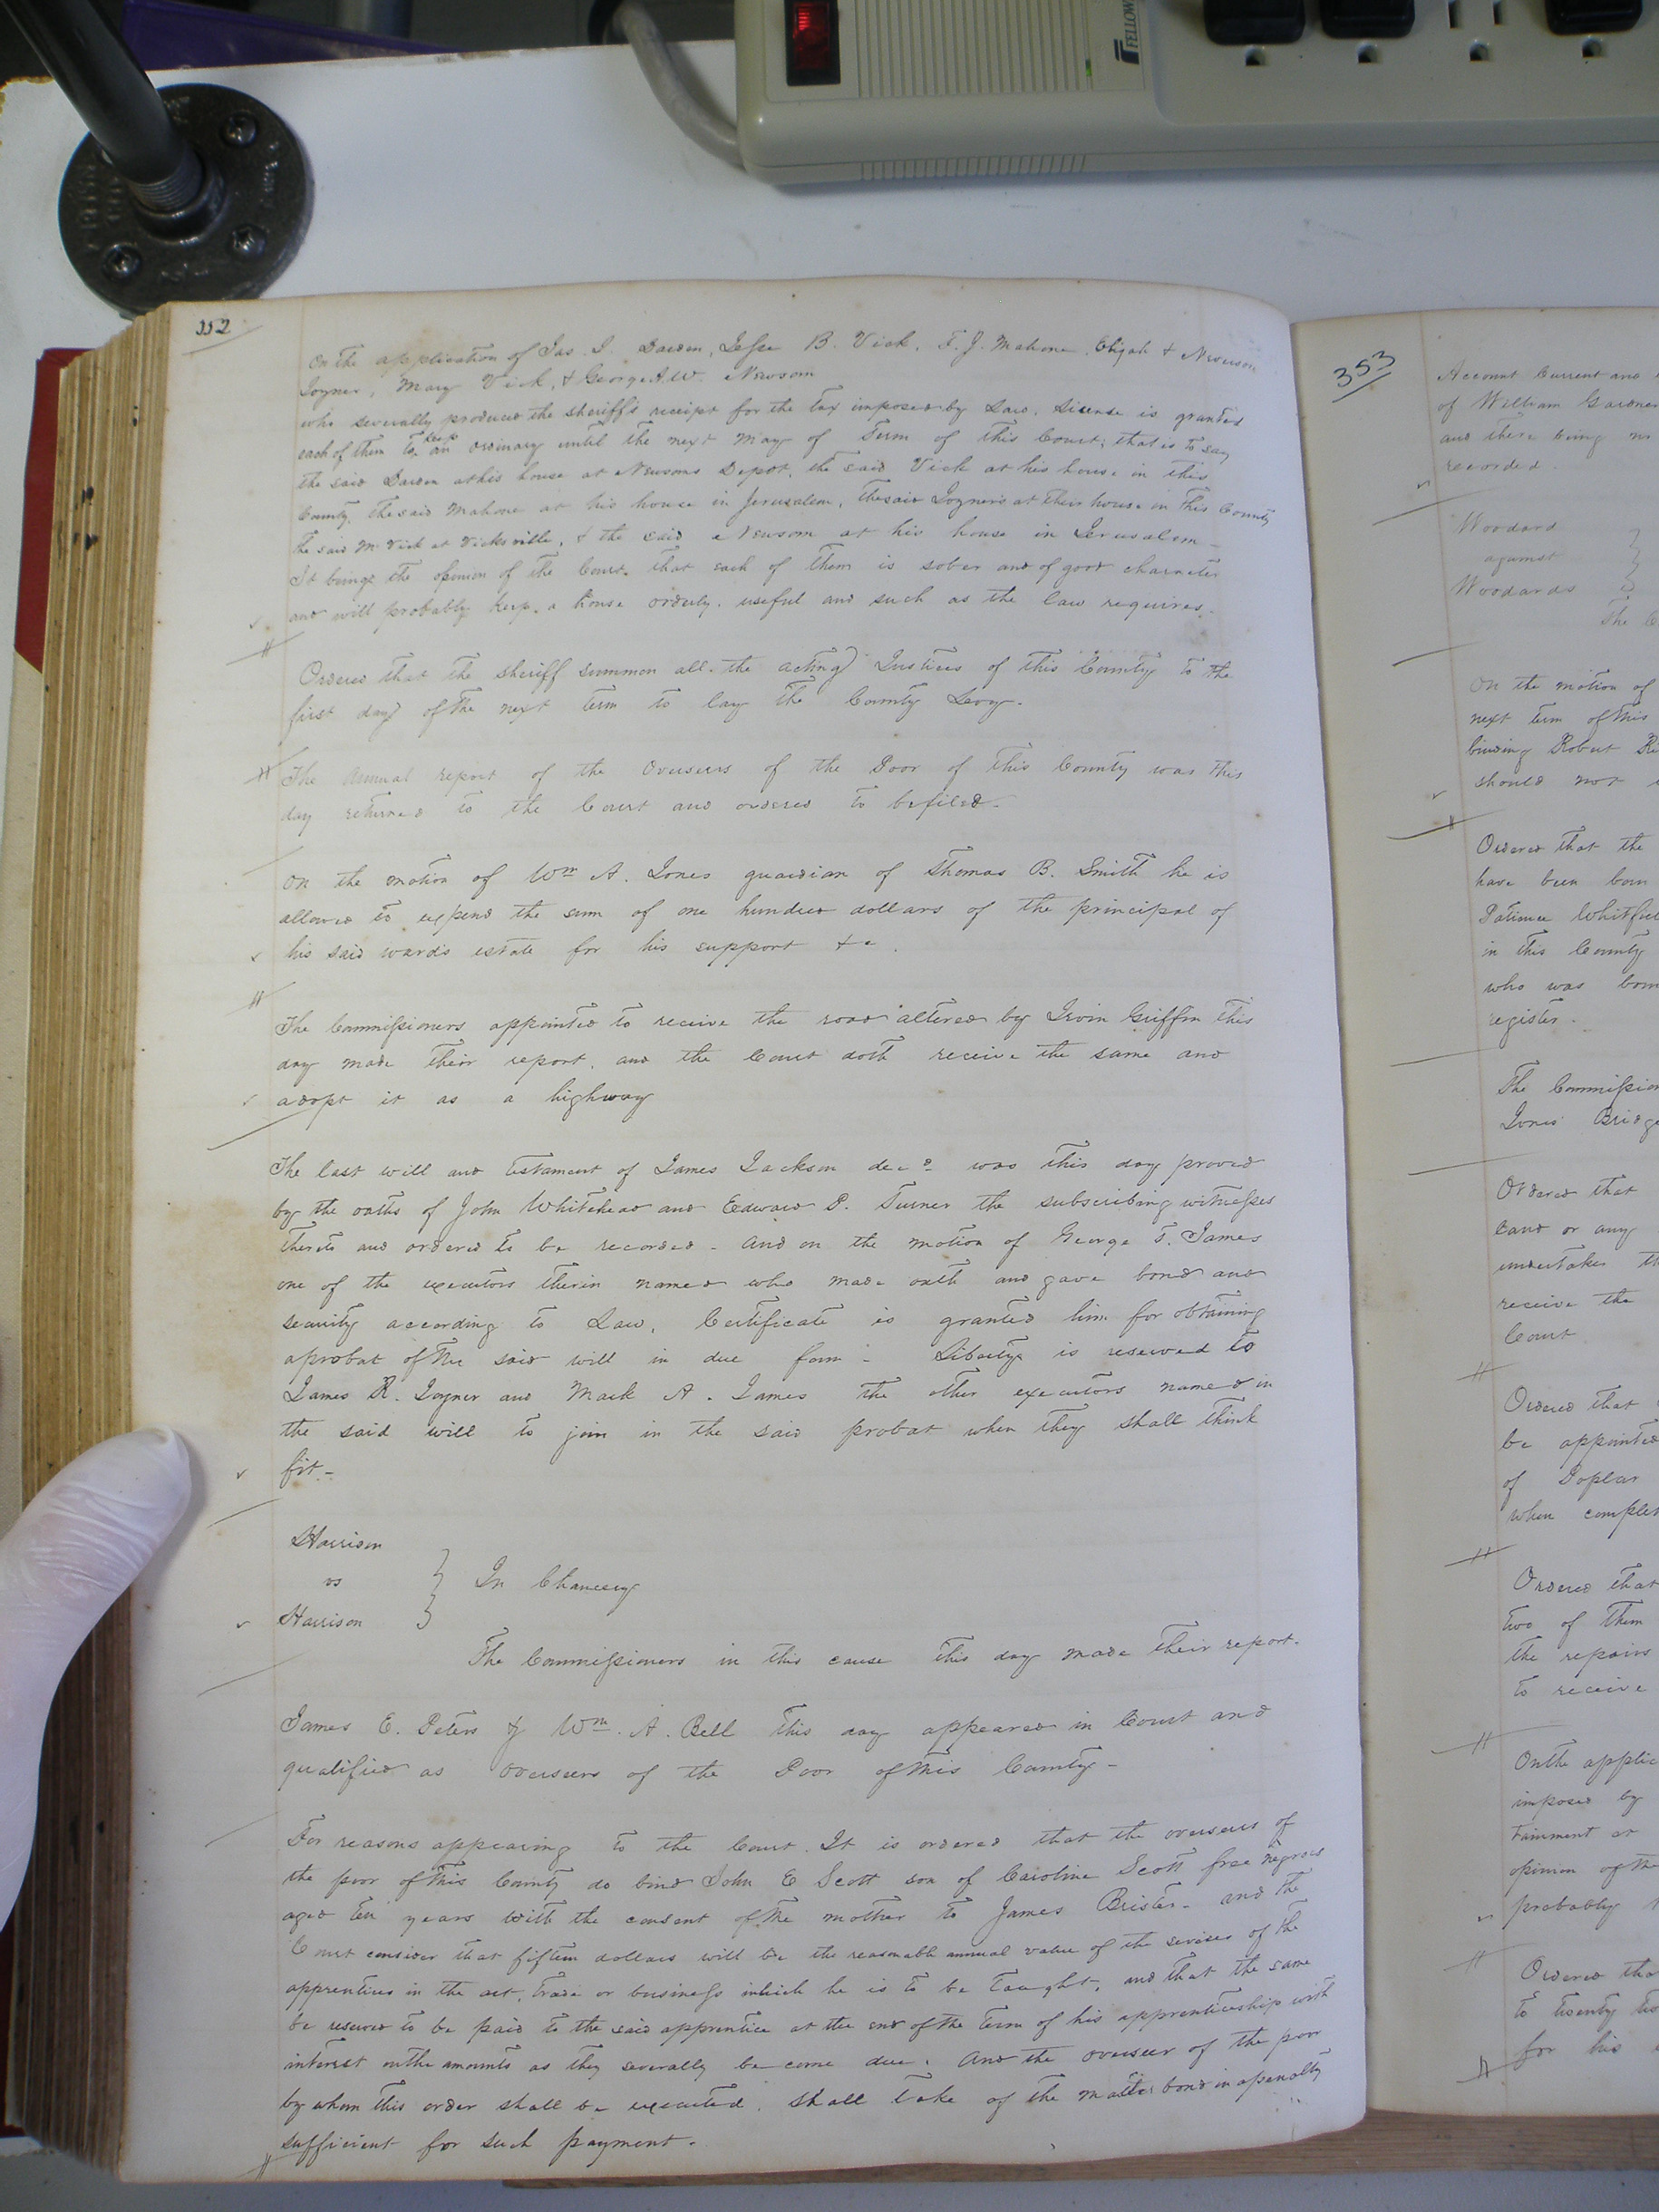 FELLOW
352
On the application of Jas. D. Darden, Jesse B. Vick, T. J. Mahone, Elijah & Newsom
Joyner, Mary Vick, & George A. W. Newsom
who severally produced the sheriff's receipt for the tax imposed by Law. License is granted
each of them to keep an ordinary until the next May of Term of this Court; that is to say
the said Darden at his house at Newsoms Depot, the said Vick at his house in this
County, the said Mahone at his house in Jerusalem, the said Joyners at their house in this County
the said M. Vick at Vicksville, & the said Newsom at his house in Jerusalem -
It being the opinion of the Court that each of them is sober and of good character
and will probably keep a house orderly, useful and such as the law requires.
Ordered that the sheriff summon all the acting Justices of this County to the
first day of the next term to lay the County Levy.
The Annual report of the Overseers of the Poor of this County was this
day returned to the Court and ordered to be filed.
On the motion of Wm A. Jones guardian of Thomas B. Smith he is
allowed to expend the sum of one hundred dollars of the principal of
his said wards estate for his support &c.
The Commissioners appointed to receive the road altered by Irvin Griffin this
day made their report, and the Court doth receive the same and
adopt it as a highway
The last will and testament of James Jackson decd was this day proved
by the oaths of John Whitehead and Edward P. Turner the subscribing witnesses
thereto and ordered to be recorded - And on the motion of George T. James
one of the executors therein named who made oath and gave bond and
security according to Law, Certificate is granted him for obtaining
a probat of the said will in due form - Liberty is reserved to
James R. Joyner and Mark A. James the other executors named in
the said will to join in the said probat when they shall think
fit -
Harrison
vs } In Chancery
Harrison
The Commissioners in this cause this day made their report.
James E. Peters & Wm. A. Bell this day appeared in Court and
qualified as overseers of the Poor of this County -
For reasons appearing to the Court. It is ordered that the overseers of
the poor of this County do bind John E Scott son of Caroline Scott free negroes
aged ten years with the consent of the mother to James Brister - and the
Court consider that fifteen dollars will be the reasonable annual value of the services of the
apprentices in the art, trade or business which he is to be taught, and that the same
be reserved to be paid to the said apprentice at the end of the term of his apprenticeship with
interest on the amounts as they severally become due. And the overseer of the poor
by whom this order shall be executed, shall take of the master bond in a penalty
sufficient for such payment.
353
Account Current and
of William Gardner
and there being no
recorded.
Woodard
against
Woodards
The
On the motion of
next term of this
binding Robert
should not
Ordered that the
have been born
Patience
in this County
who was born
register.
The Commission
Jones Bridge
Ordered that
Land or any
undertaker
receive the
Court
Ordered that
be appointed
of Poplar
when complet
Ordered that
two of them
the repairs
to receive
On the applic
imposed by
tainment at
opinion of the
probably
Ordered that
to twenty two
for his